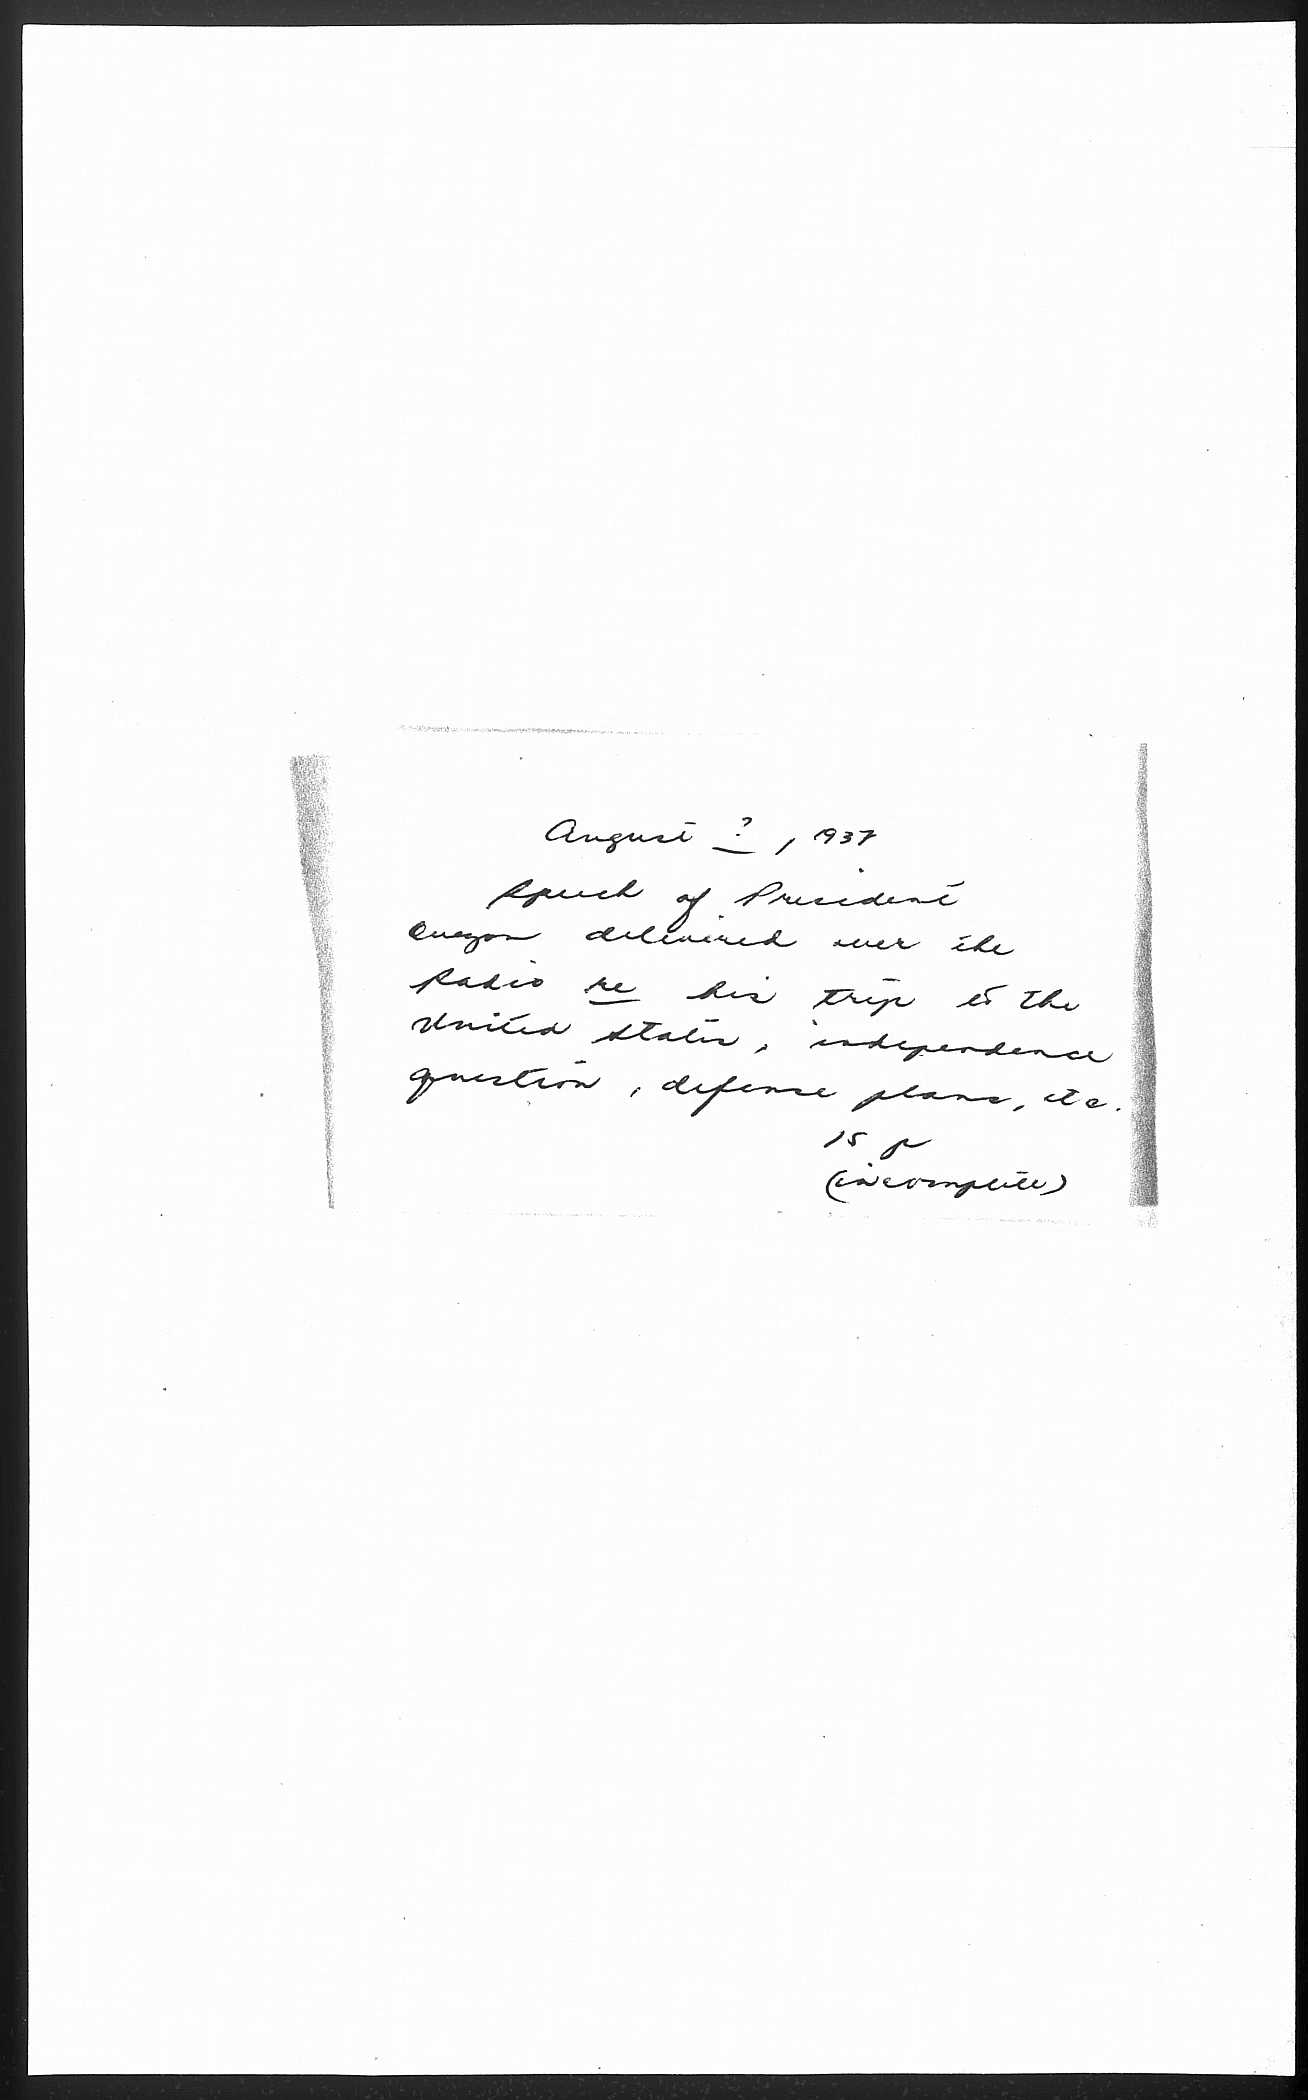 August ?, 1937
Speech of President
Quezon delivered over the
Radio re his trip to the
United States, independence
question, defense plans, etc.
15 p
(incomplete)